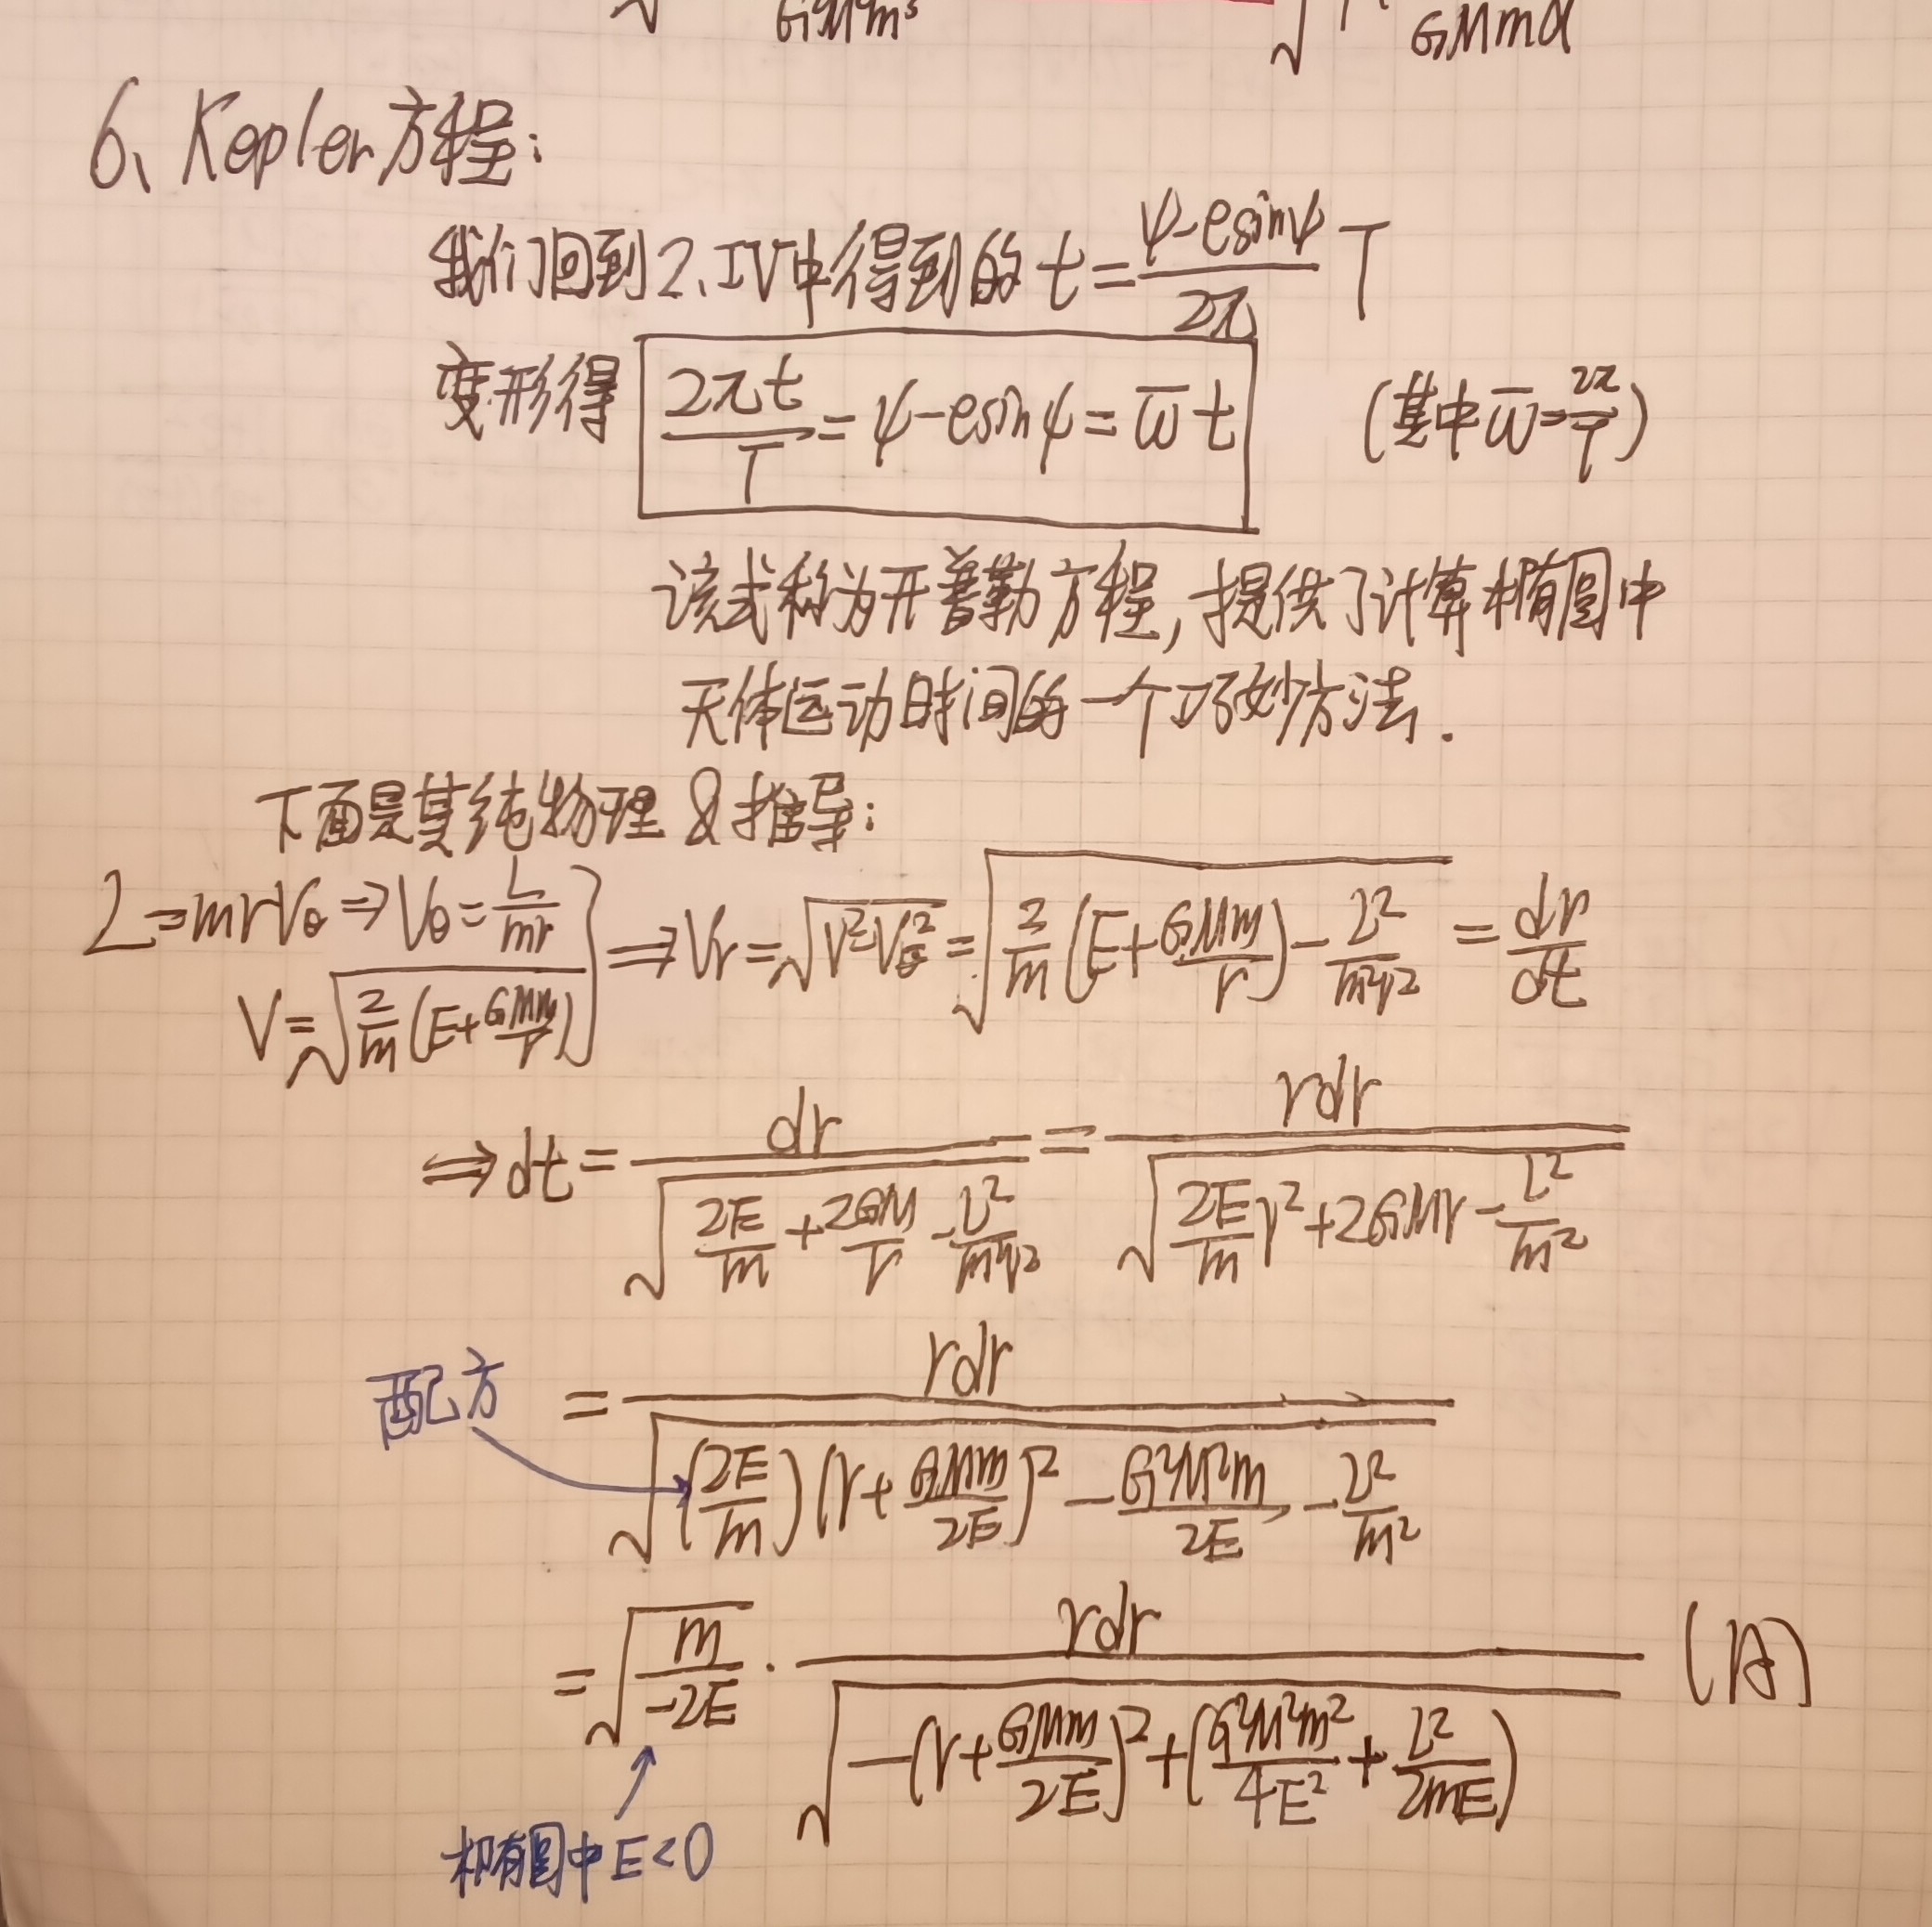 GMm³ GMmα
6、Kepler方程：
我们回到2.IV中得到的 t=\frac{ψ-esinψ}{2π}T
变形得 \frac{2πt}{T}=ψ-esinψ=\overline{ω}t (其中\overline{ω}=\frac{2π}{T})
该式称为开普勒方程,提供了计算椭圆中
天体运动时间的一个巧妙方法.
下面是其纯物理 推导：
L=mrV_θ⇒V_θ=\frac{L}{mr}
V=\sqrt{\frac{2}{m}(E+\frac{GMm}{r})}
}⇒V_r=\sqrt{V²-V_θ²}=\sqrt{\frac{2}{m}(E+\frac{GMm}{r})-\frac{L²}{m²r²}}=\frac{dr}{dt}
⇒dt=\frac{dr}{\sqrt{\frac{2E}{m}+\frac{2GM}{r}-\frac{L²}{m²r²}}}=\frac{rdr}{\sqrt{\frac{2E}{m}r²+2GMr-\frac{L²}{m²}}}
配方 =\frac{rdr}{\sqrt{(\frac{2E}{m})(r+\frac{GMm}{2E})²-\frac{G²M²m}{2E}-\frac{L²}{m²}}}
=\sqrt{\frac{m}{-2E}}·\frac{rdr}{\sqrt{-(r+\frac{GMm}{2E})²+(\frac{G²M²m²}{4E²}+\frac{L²}{2mE})}} (A)
椭圆中E<0